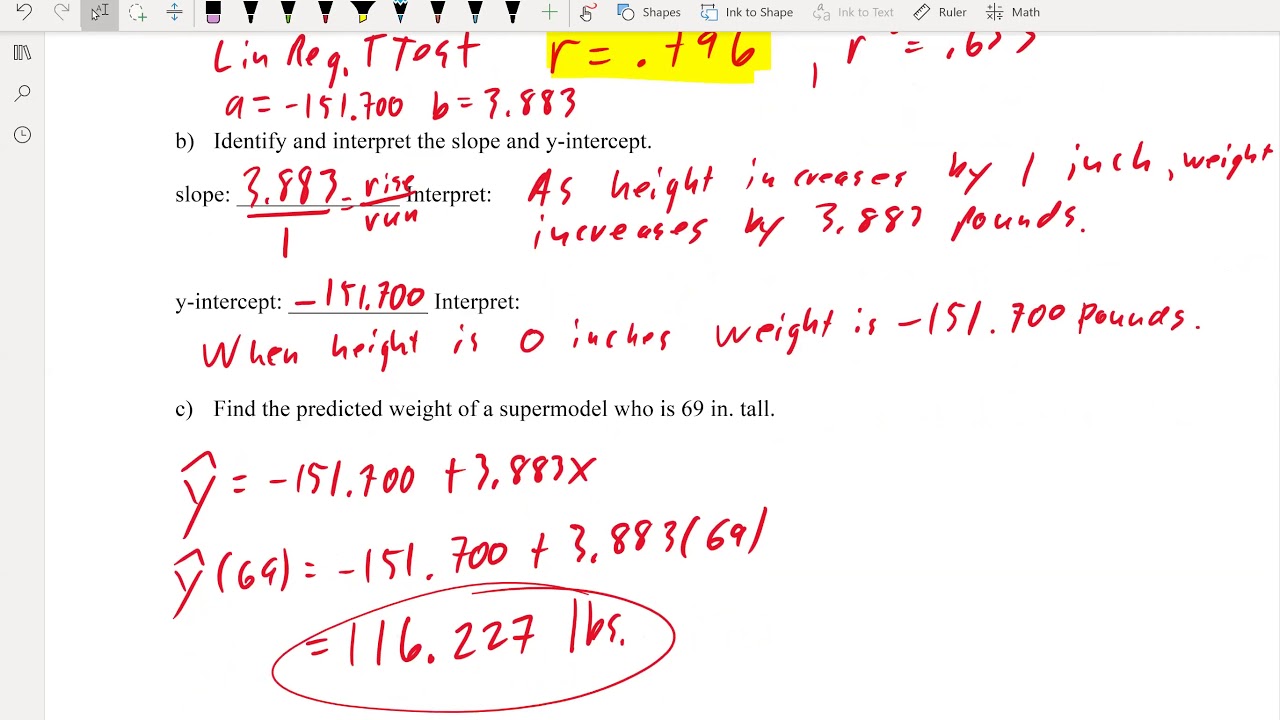 Shapes Ink to Shape Ink to Text Ruler Math
Lin Reg. T Test r = .796 , r² = .633
a = -151.700 b = 3.883
b) Identify and interpret the slope and y-intercept.
slope: 3.883/1 = rise/run Interpret: As height increases by 1 inch, weight
increases by 3.883 pounds.
y-intercept: -151.700 Interpret:
When height is 0 inches weight is -151.700 pounds.
c) Find the predicted weight of a supermodel who is 69 in. tall.
ŷ = -151.700 + 3.883x
ŷ(69) = -151.700 + 3.883(69)
= 116.227 lbs.